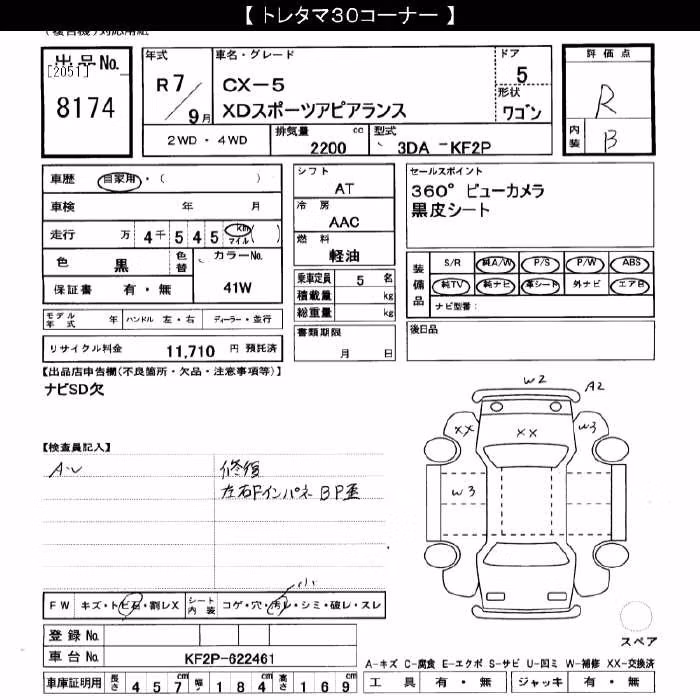 【 トレタマ30コーナー 】
出品No.
[2051]
8174
年式
R7/9月
車名・グレード
CX-5
XDスポーツアピアランス
ドア
5
形状
ワゴン
評価点
R
内装
B
2WD・4WD
排気量
2200 cc
型式
3DA -KF2P
車歴 自家用・( )
車検 年 月
走行 万 4千 5 4 5 km マイル ( )
色 黒
色替
カラーNo.
41W
保証書 有・無
モデル年式 年
ハンドル 左・右
ディーラー・並行
リサイクル料金 11,710 円 預託済
シフト
AT
冷房
AAC
燃料
軽油
乗車定員 5 名
積載量 kg
総重量 kg
書類期限
月 日
セールスポイント
360° ビューカメラ
黒皮シート
装備品
S/R 純A/W P/S P/W ABS
純TV 純ナビ 革シート 外ナビ エアB
ナビ型番:
後日品
【出品店申告欄(不良箇所・欠品・注意事項等)】
ナビSD欠
【検査員記入】
A・U
修復
左右Fインパネ BP歪
W2
A2
XX
XX
W3
W3
FW キズ・トビ石・割レX
シート内装 コゲ・穴・汚レ・シミ・破レ・スレ
小
登録No.
車台No. KF2P-622461
車庫証明用 長さ 4 5 7 cm 幅 1 8 4 cm 高さ 1 6 9 cm
スペア
A-キズ C-腐食 E-エクボ S-サビ U-凹ミ W-補修 XX-交換済
工具 有・無 ジャッキ 有・無